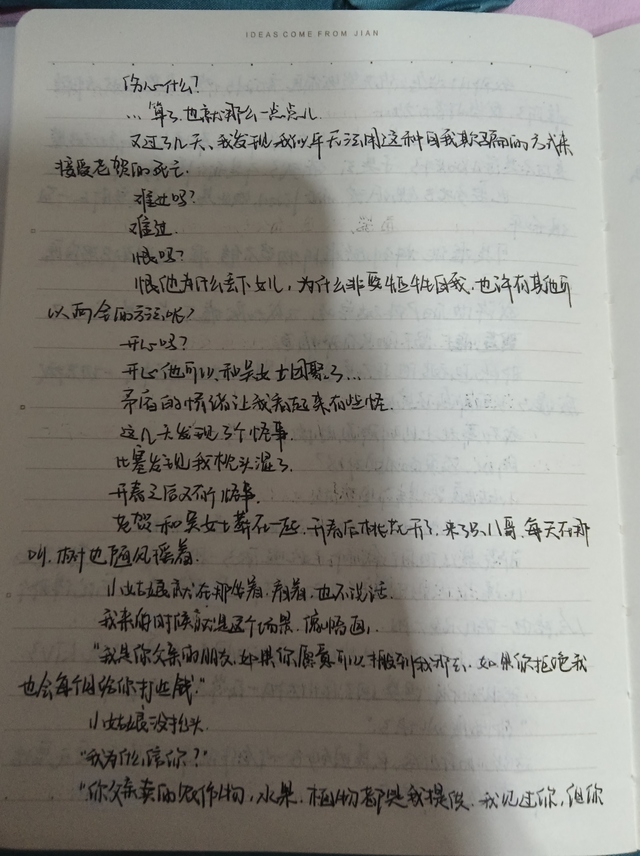 IDEAS COME FROM JIAN
伤心什么?
…算了,也就那么一点点儿.
又过了几天、我发现我似乎无法用这种自我欺骗的方式来
接受老贺的死亡.
难过吗?
难过.
恨吗?
恨他为什么丢下女儿,为什么非要牺牲自我.也许有其他可
以两全的方法呢?
开心吗?
开心他可以和吴女士团聚了…
矛盾的情绪让我看起来有些怪.
这几天发现了个怪事.
比塞发现我枕头湿了.
开春之后又有个怪事.
老贺和吴女士葬在一些.开春后桃花开了.来了只八哥.每天在那
叫.树也随风摇着.
小姑娘就在那坐着.看着.也不说话.
我来的时候就是这个场景.像悟画.
"我是你父亲的朋友.如果你愿意可以搬到我那去.如果你拒绝我
也会每个月给你打些钱."
小姑娘没抬头.
"我为什么信你?"
"你父亲卖的农作物,水果.植物都是我提供.我见过你,但你